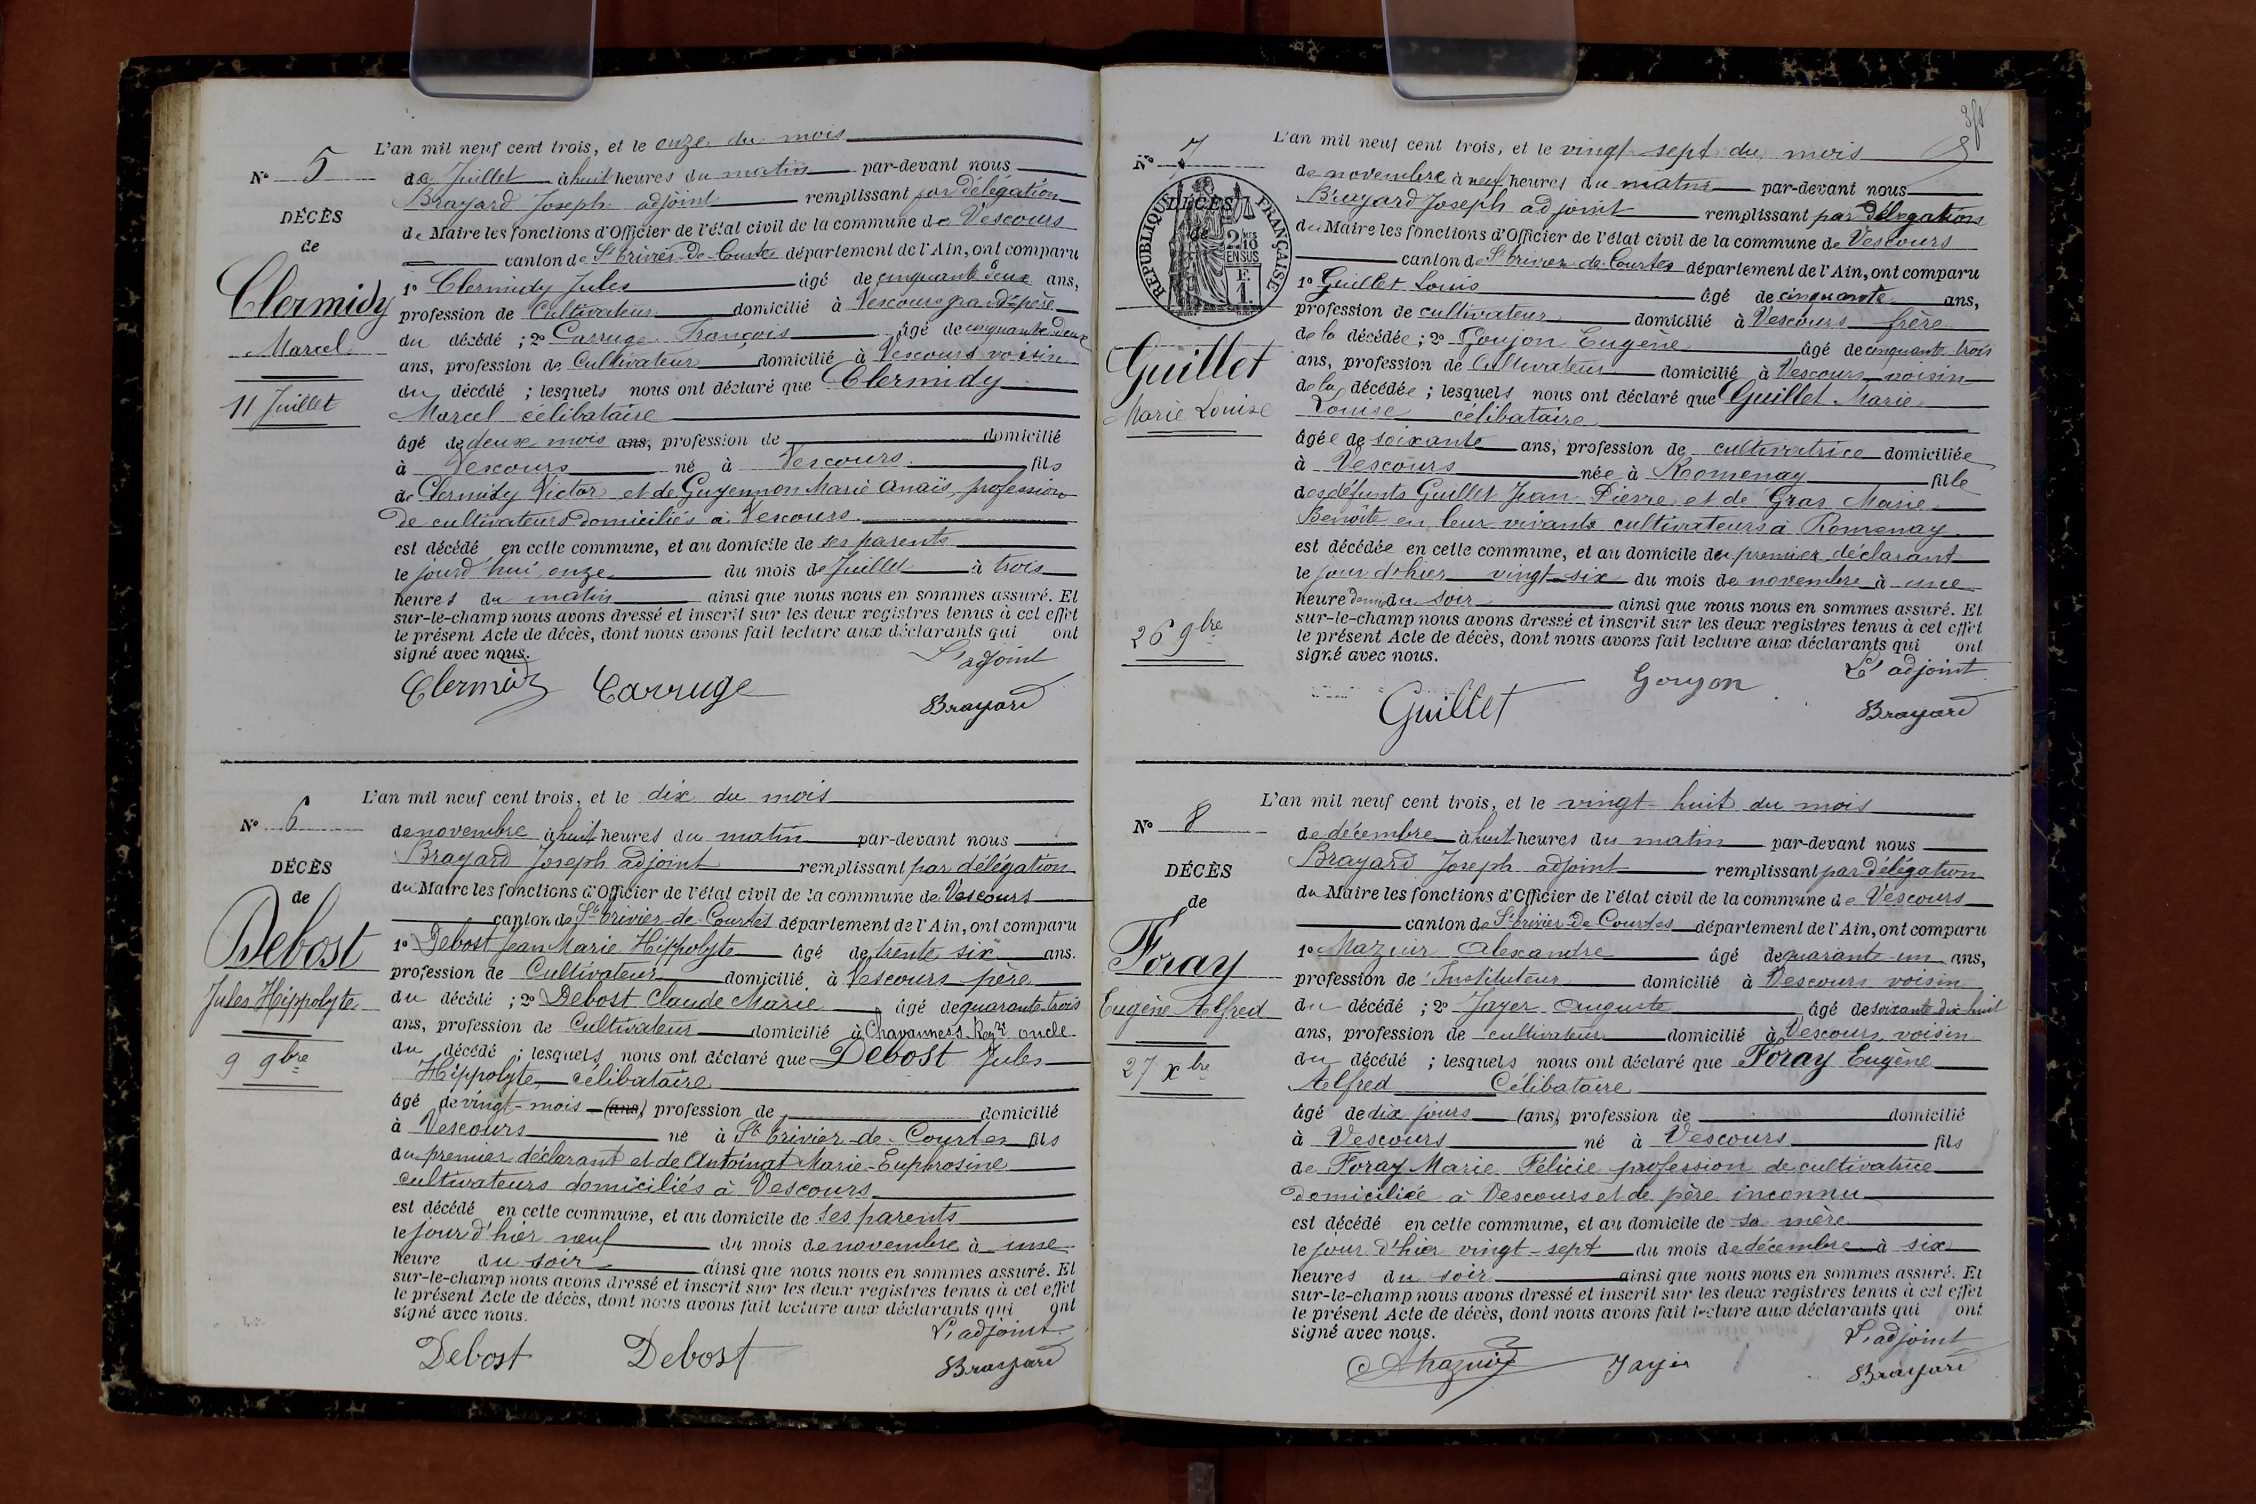 L'an mil neuf cent trois, et le onze du mois
N° 5
de Juillet à huit heures du matin par-devant nous
Brayard Joseph adjoint remplissant par délégation
DÉCÈS
de Maire les fonctions d'Officier de l'état civil de la commune de Vescours
de
canton de St Trivier-de-Courtes département de l'Ain, ont comparu
Clermidy
1° Clermidy Jules âgé de cinquante deux ans,
profession de Cultivateur domicilié à Vescours grand-père
Marcel
du décédé ; 2° Carruge François âgé de cinquante deux
ans, profession de Cultivateur domicilié à Vescours voisin
11 Juillet
du décédé ; lesquels nous ont déclaré que Clermidy
Marcel célibataire
âgé de deux mois ans, profession de domicilié
à Vescours né à Vescours fils
de Clermidy Victor et de Guyennon Marie Anaïs, profession
de cultivateurs domiciliés à Vescours
est décédé en cette commune, et au domicile de ses parents
le jourd'hui onze du mois de Juillet à trois
heures du matin ainsi que nous nous en sommes assuré. Et
sur-le-champ nous avons dressé et inscrit sur les deux registres tenus à cet effet
le présent Acte de décès, dont nous avons fait lecture aux déclarants qui ont
signé avec nous.
L'adjoint
Clermidy Carruge
Brayard
L'an mil neuf cent trois, et le dix du mois
N° 6
de novembre à huit heures du matin par-devant nous
Brayard Joseph adjoint remplissant par délégation
DÉCÈS
du Maire les fonctions d'Officier de l'état civil de la commune de Vescours
de
canton de St Trivier-de-Courtes département de l'Ain, ont comparu
Debost
1° Debost Jean Marie Hippolyte âgé de trente six ans.
profession de Cultivateur domicilié à Vescours père
Jules Hippolyte
du décédé ; 2° Debost Claude Marie âgé de quarante-trois
ans, profession de Cultivateur domicilié à Chavannes s. Reyze oncle
9 9bre
du décédé ; lesquels nous ont déclaré que Debost Jules
Hippolyte célibataire
âgé de vingt-mois (ans,) profession de domicilié
à Vescours né à St Trivier-de-Courtes fils
du premier déclarant et de Antoinat Marie-Euphrosine
cultivateurs domiciliés à Vescours
est décédé en cette commune, et au domicile de ses parents
le jour d'hier neuf du mois de novembre à une
heure du soir ainsi que nous nous en sommes assuré. Et
sur-le-champ nous avons dressé et inscrit sur les deux registres tenus à cet effet
le présent Acte de décès, dont nous avons fait lecture aux déclarants qui ont
signé avec nous.
L'adjoint
Debost Debost
Brayard
L'an mil neuf cent trois, et le vingt sept du mois
N° 7
de novembre à neuf heures du matin par-devant nous
Brayard Joseph adjoint remplissant par délégation
DÉCÈS
de
RÉPUBLIQUE FRANÇAISE
2 mes 10 EN SUS
F. 1.
du Maire les fonctions d'Officier de l'état civil de la commune de Vescours
canton de St Trivier-de-Courtes département de l'Ain, ont comparu
1° Guillet Louis âgé de cinquante ans,
profession de cultivateur domicilié à Vescours frère
Guillet
de la décédée ; 2° Goujon Eugène âgé de cinquante trois
ans, profession de Cultivateur domicilié à Vescours voisin
Marie Louise
de la décédée ; lesquels nous ont déclaré que Guillet Marie
Louise célibataire
âgée de soixante ans, profession de cultivatrice domiciliée
à Vescours née à Romenay fille
des défunts Guillet Jean Pierre et de Gras Marie
Benoîte en leur vivants cultivateurs à Romenay
est décédée en cette commune, et au domicile du premier déclarant
le jour d'hier vingt-six du mois de novembre à une
heure demi du soir ainsi que nous nous en sommes assuré. Et
26 9bre
sur-le-champ nous avons dressé et inscrit sur les deux registres tenus à cet effet
le présent Acte de décès, dont nous avons fait lecture aux déclarants qui ont
signé avec nous.
L'adjoint
Guillet Goujon
Brayard
L'an mil neuf cent trois, et le vingt-huit du mois
N° 8
de décembre à huit heures du matin par-devant nous
Brayard Joseph adjoint remplissant par délégation
DÉCÈS
du Maire les fonctions d'Officier de l'état civil de la commune de Vescours
de
canton de St Trivier-de-Courtes département de l'Ain, ont comparu
Foray
1° Mazuir Alexandre âgé de quarante-un ans,
profession de Instituteur domicilié à Vescours voisin
Eugène Alfred
du décédé ; 2° Jayer Auguste âgé de soixante dix huit
ans, profession de cultivateur domicilié à Vescours voisin
27 xbre
du décédé ; lesquels nous ont déclaré que Foray Eugène
Alfred Célibataire
âgé de dix jours (ans,) profession de domicilié
à Vescours né à Vescours fils
de Foray Marie Félicie profession de cultivatrice
domiciliée à Vescours et de père inconnu
est décédé en cette commune, et au domicile de sa mère
le jour d'hier vingt-sept du mois de décembre à six
heures du soir ainsi que nous nous en sommes assuré. Et
sur-le-champ nous avons dressé et inscrit sur les deux registres tenus à cet effet
le présent Acte de décès, dont nous avons fait lecture aux déclarants qui ont
signé avec nous.
L'adjoint
AMazuir Jayer
Brayard